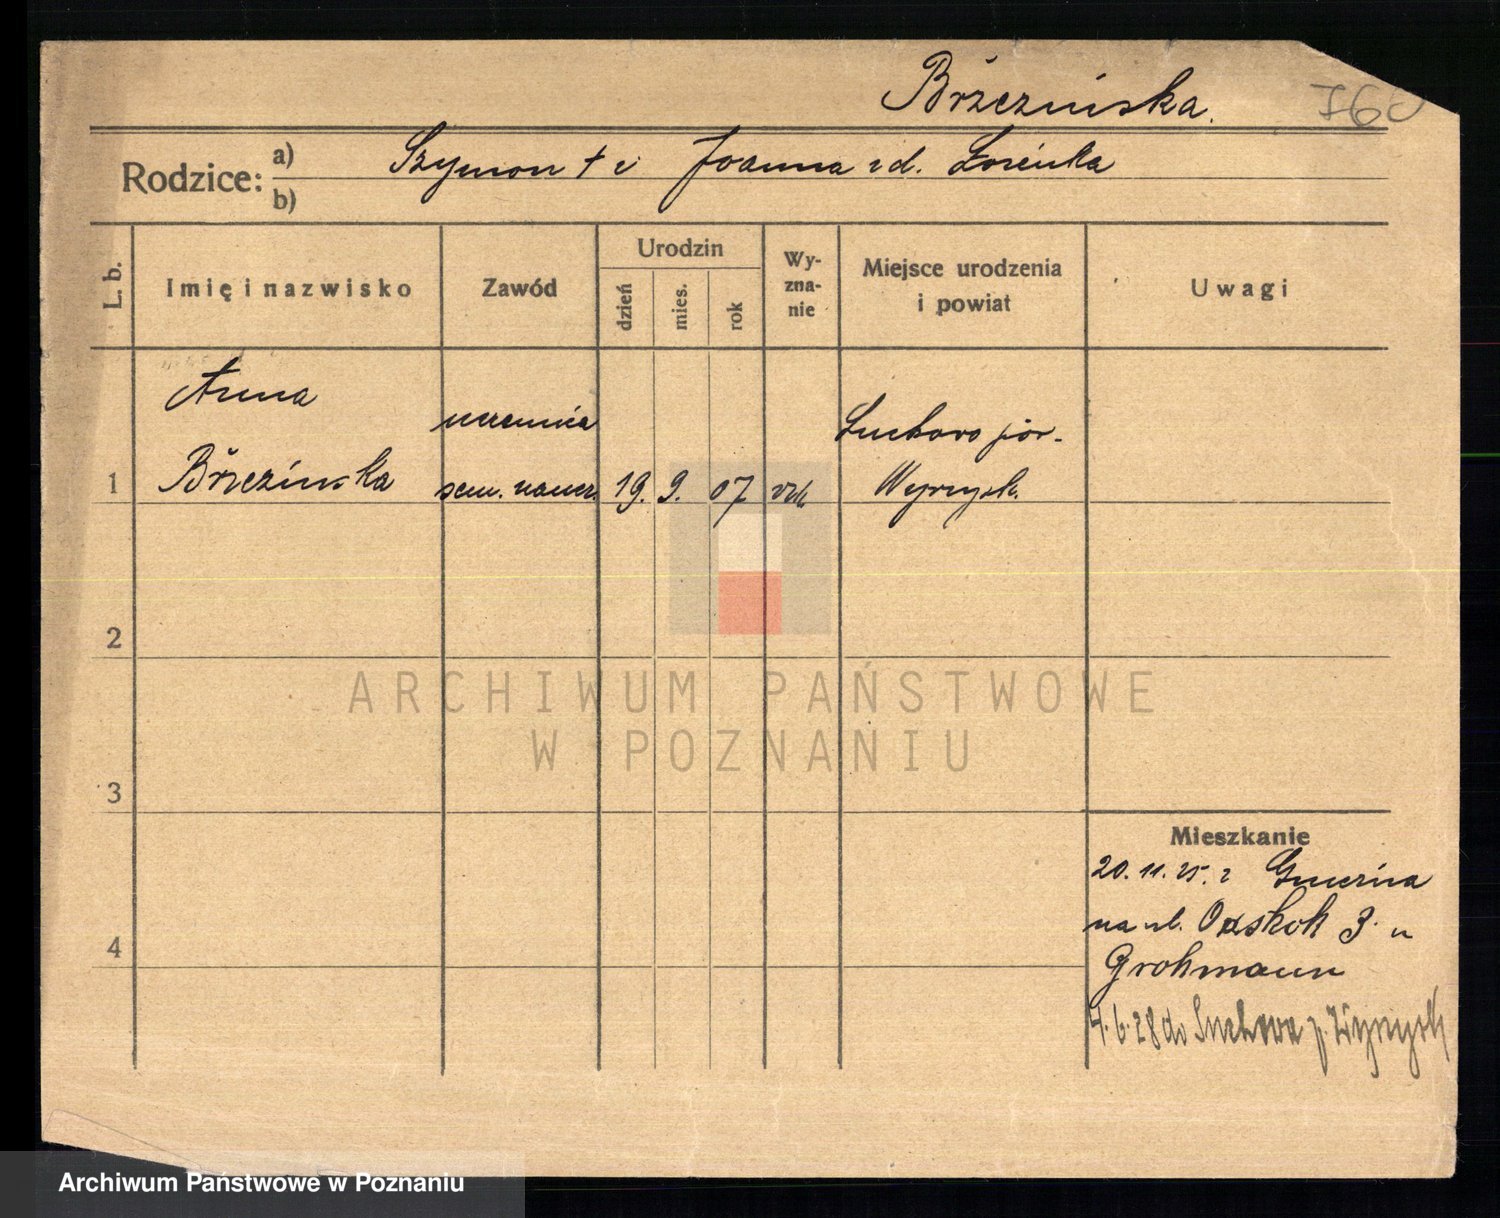 Brzezińska.
Rodzice: a) b)
Szymon † i Joanna zd. Łosińka
L. b.
Imię i nazwisko
Zawód
Urodzin
dzień
mies.
rok
Wy-
zna-
nie
Miejsce urodzenia
i powiat
Uwagi
Anna
Brzezińska
uczennica
sem. naucz.
1
19. 9. 07
rzk
Wyrzysk.
2
3
4
Mieszkanie
20. 11. 25. z Gniezna
na ul.
3. u
Grohmann
4. 6. 28 do Suchowa p. Wyrzysk
ARCHIWUM PAŃSTWOWE
W POZNANIU
Archiwum Państwowe w Poznaniu